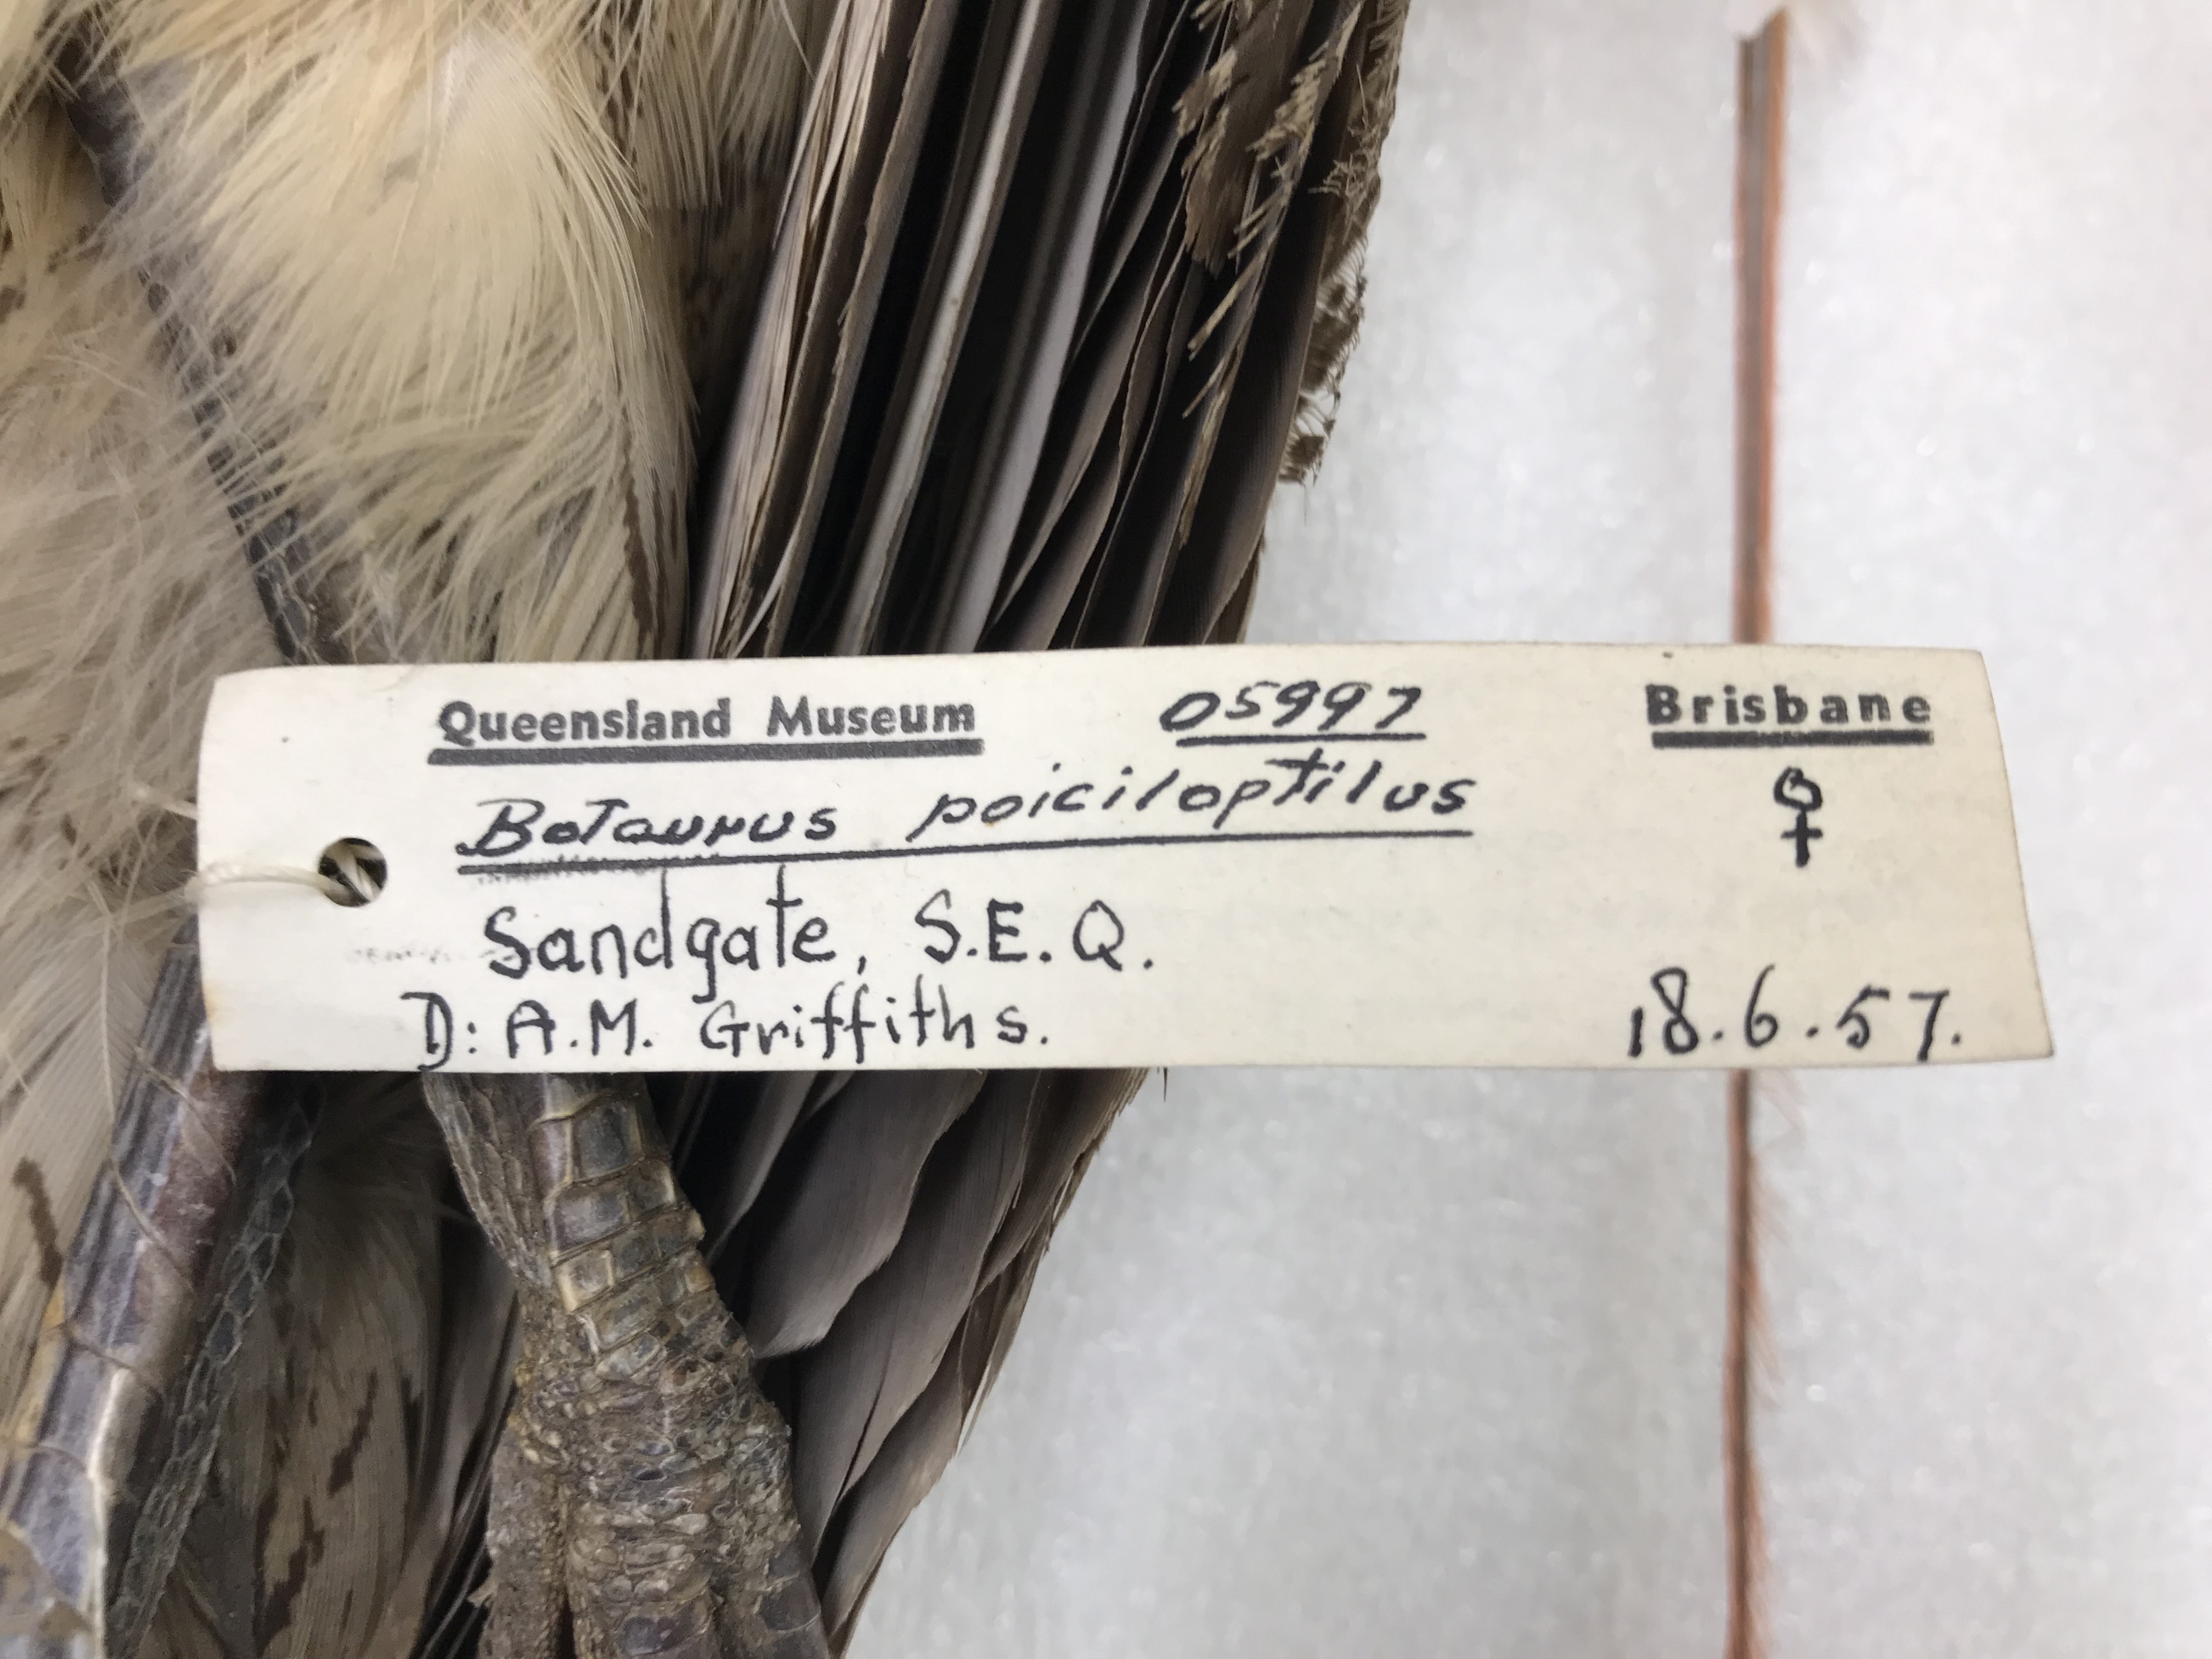 Queensland Museum O5997 Brisbane
Botaurus poiciloptilus ♀
Sandgate, S.E.Q.
D: A.M. Griffiths. 18.6.57.